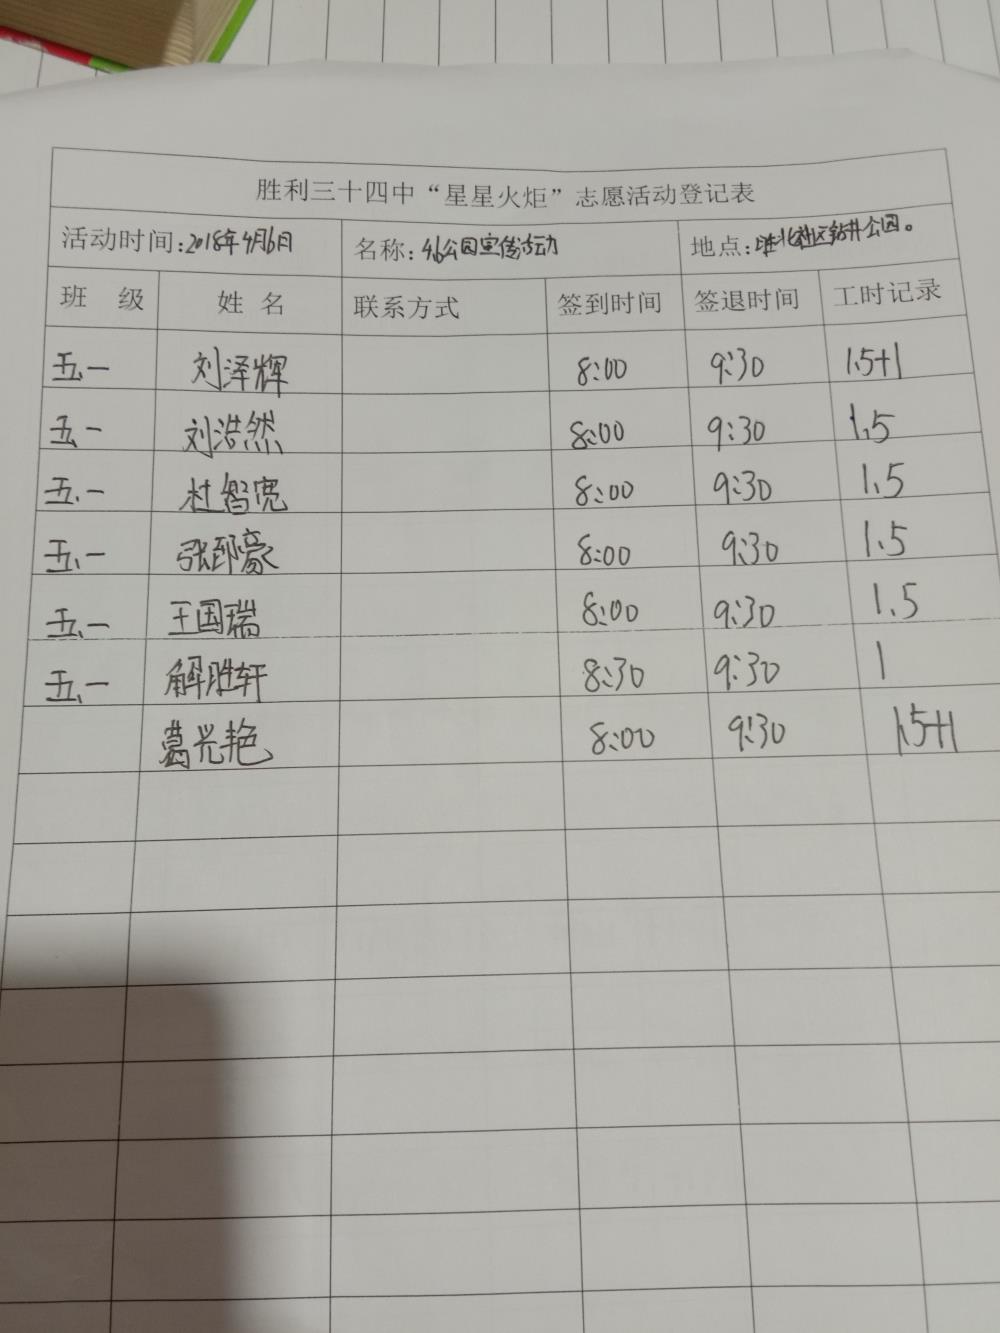 胜利三十四中“星星火炬”志愿活动登记表
活动时间:2018年4月6日 名称:公园宣传活动 地点:胜北社区钻井公园。
班 级 姓 名 联系方式 签到时间 签退时间 工时记录
五.一 刘泽辉 8:00 9:30 1.5+1
五.一 刘浩然 8:00 9:30 1.5
五.一 杜智宽 8:00 9:30 1.5
五.一 张郅豪 8:00 9:30 1.5
五.一 王国瑞 8:00 9:30 1.5
五.一 解胜轩 8:30 9:30 1
葛兴艳 8:00 9:30 1.5+1